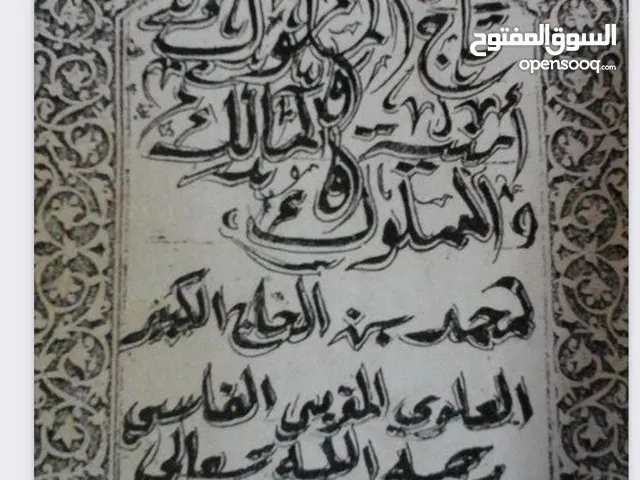 السوق المفتوح
opensooq.com
تاج الملوك
أمنية المالك
والمملوك
لمحمد بن الحاج الكبير
العلوي المغربي الفاسي
رحمه الله تعالى